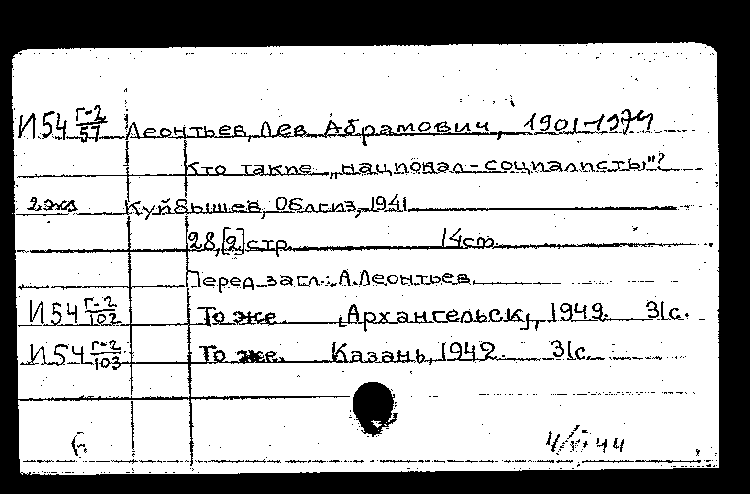 И54 Г-2/57 Леонтьев, Лев Абрамович, 1901-1974
Кто такие „национал-социалисты"?
2 экз Куйбышев, Облгиз, 1941
28,[2] стр. 14 см.
Перед загл.: А.Леонтьев.
И54 Г-2/102 То же. [Архангельск], 1942. 31с.
И54 Г-2/103 То же. Казань, 1942. 31с.
4/VI 44